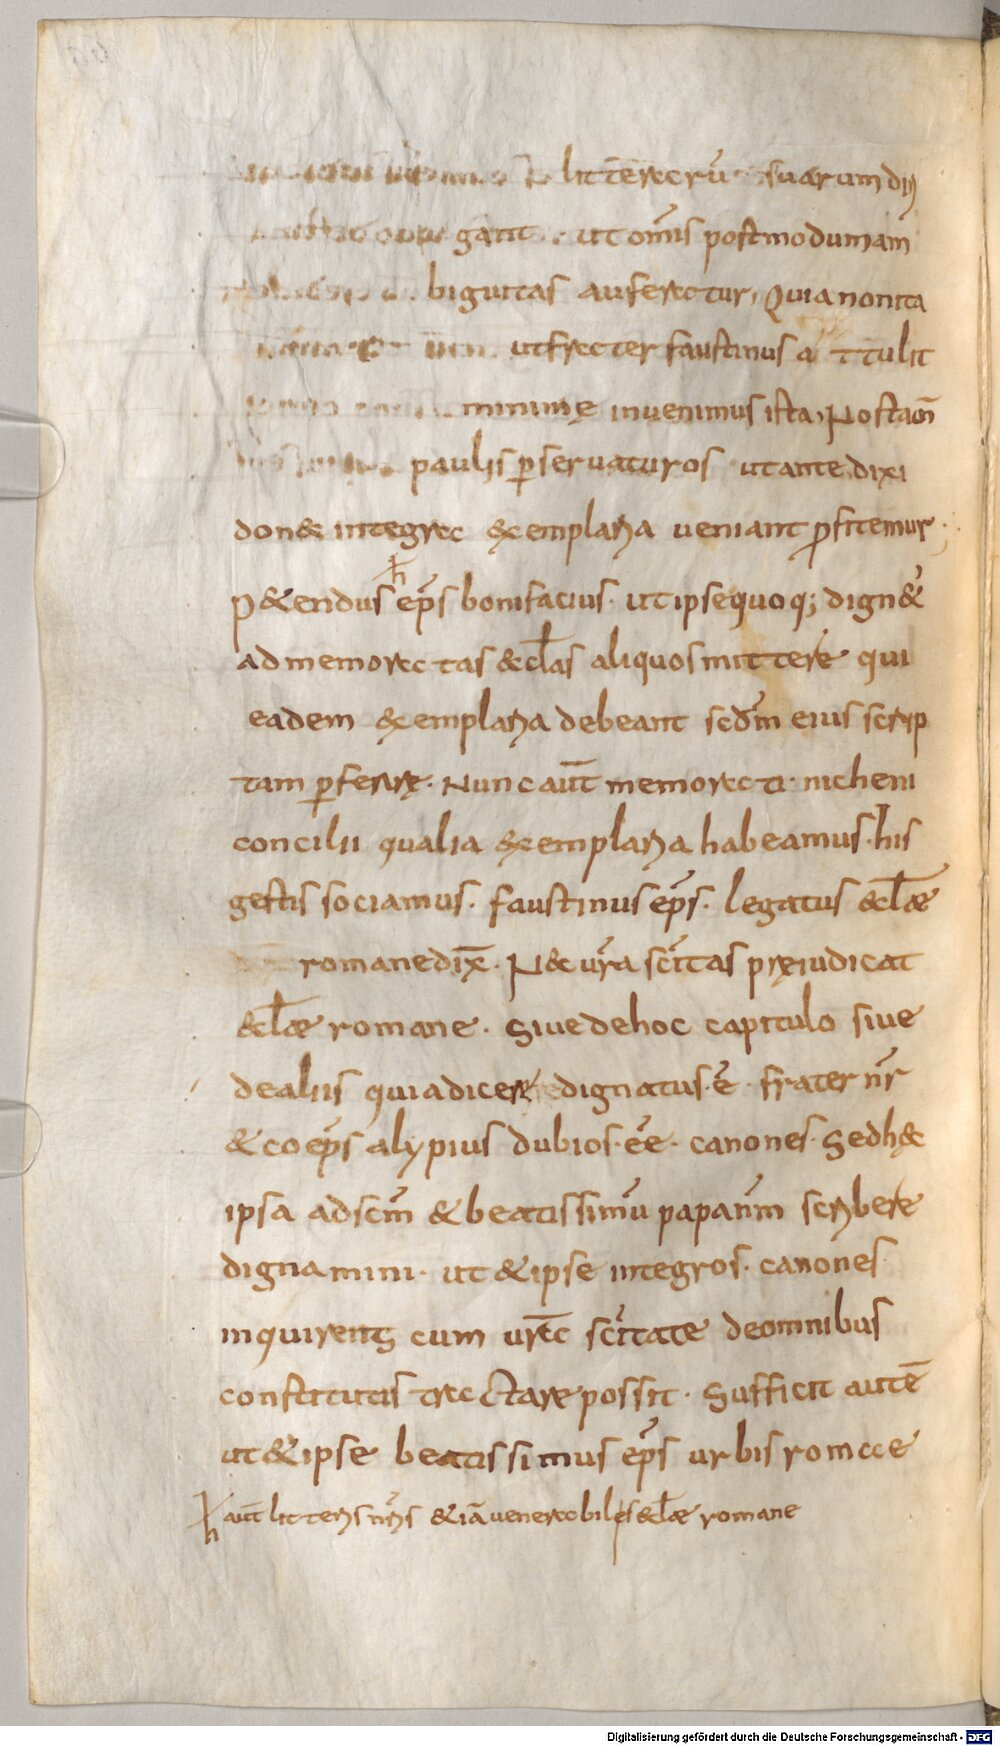 litterarū suarum diri
gant ut om̄is postmodum am
biguitas auferatur, Quia non ita
ut frater faustinus a ttulit
minimę invenimus ista, Postaōn
paulis ꝑservaturos ut ante dixi
don& integra &xemplaria veniant ꝓfitemur
P&endus ep̄s bonifacius · ut ipse quoq; dign&
ad memoratas &cl̄as aliquos mittere qui
eadem &xemplaria debeant scd̄m eius scrip
tam ꝑferrę · Nunc aūt memorati · nicheni
concilii qualia &xemplaria habeamus · his
gestis sociamus · faustinus ep̄s · legatus &cl̄ae
romane dix̄ · Nec ur̄a sc̄itas pręiudicat
&cl̄ae romane · Sive de hoc capitulo sive
de aliis quia dicere dignatus · ē · frater nr̄
& coep̄s alypius dubios · ēe · canones · Sed hęc
ipsa ad sc̄m & beatissimū papam nr̄m scribere
dignamini · ut & ipse integros · canones
inquirens cum ur̄a sc̄itate de omnibus
constitutis tractare possit · Sufficit autē
ut & ipse beatissimus ep̄s urbis romae
aūt litteris nr̄is & iā venerabilis &cl̄ae romane
Digitalisierung gefördert durch die Deutsche Forschungsgemeinschaft - DFG